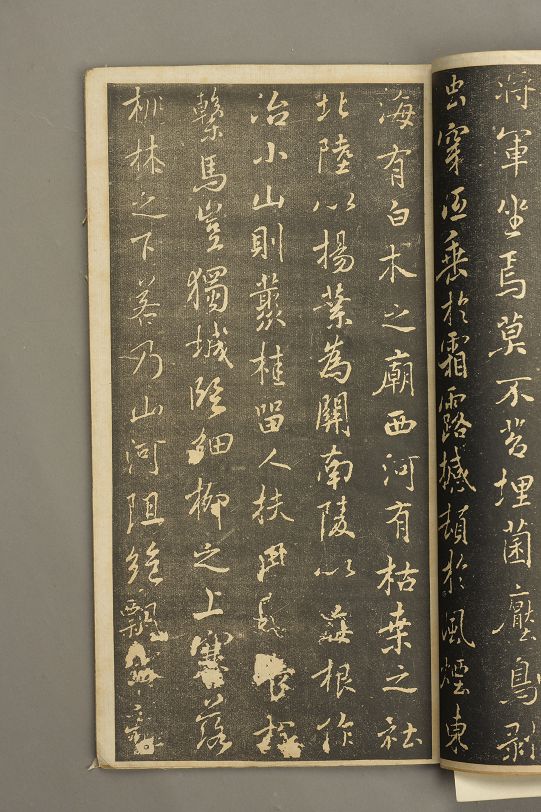 將軍坐焉莫不苔埋菌壓鳥剝
虫穿低垂於霜露撼頓於風煙東
海有白木之廟西河有枯桒之社
北陸以揚葉為關南陵以梅根作
冶小山則叢桂留人扶風長松
繫馬豈獨城臨細柳之上塞落
桃林之下若乃山河阻絶飄零離